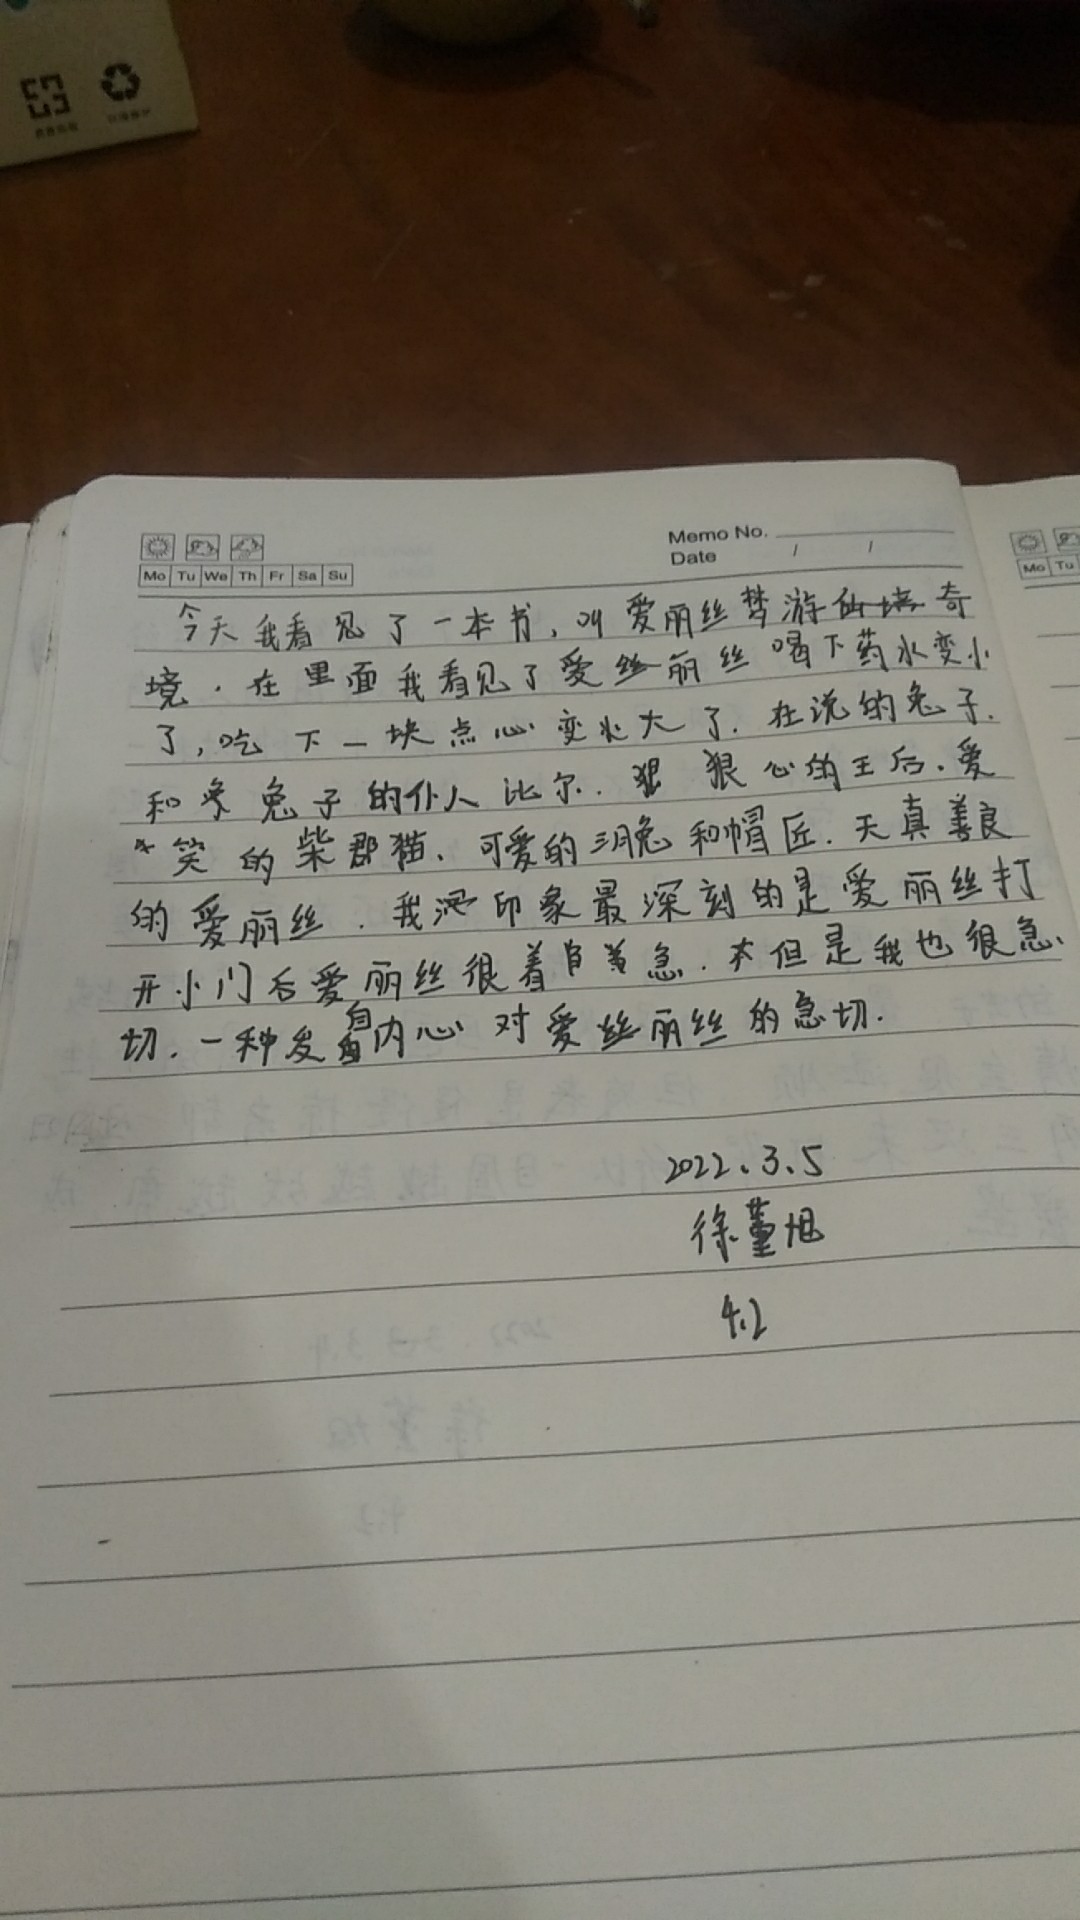 Memo No.
Date / /
Mo Tu We Th Fr Sa Su
Mo Tu
今天我看见了一本书，叫爱丽丝梦游仙境奇
境．在里面我看见了爱丝丽丝喝下药水变小
了，吃下一块点心变大了．在说的兔子．
和兔子的仆人比尔．狠心的王后、爱
笑的柴郡猫、可爱的三月兔和帽匠．天真善良
的爱丽丝．我印象最深刻的是爱丽丝打
开小门后爱丽丝很着急．但是我也很急
切．一种发自内心对爱丝丽丝的急切．
2022.3.5
徐堇旭
4.2